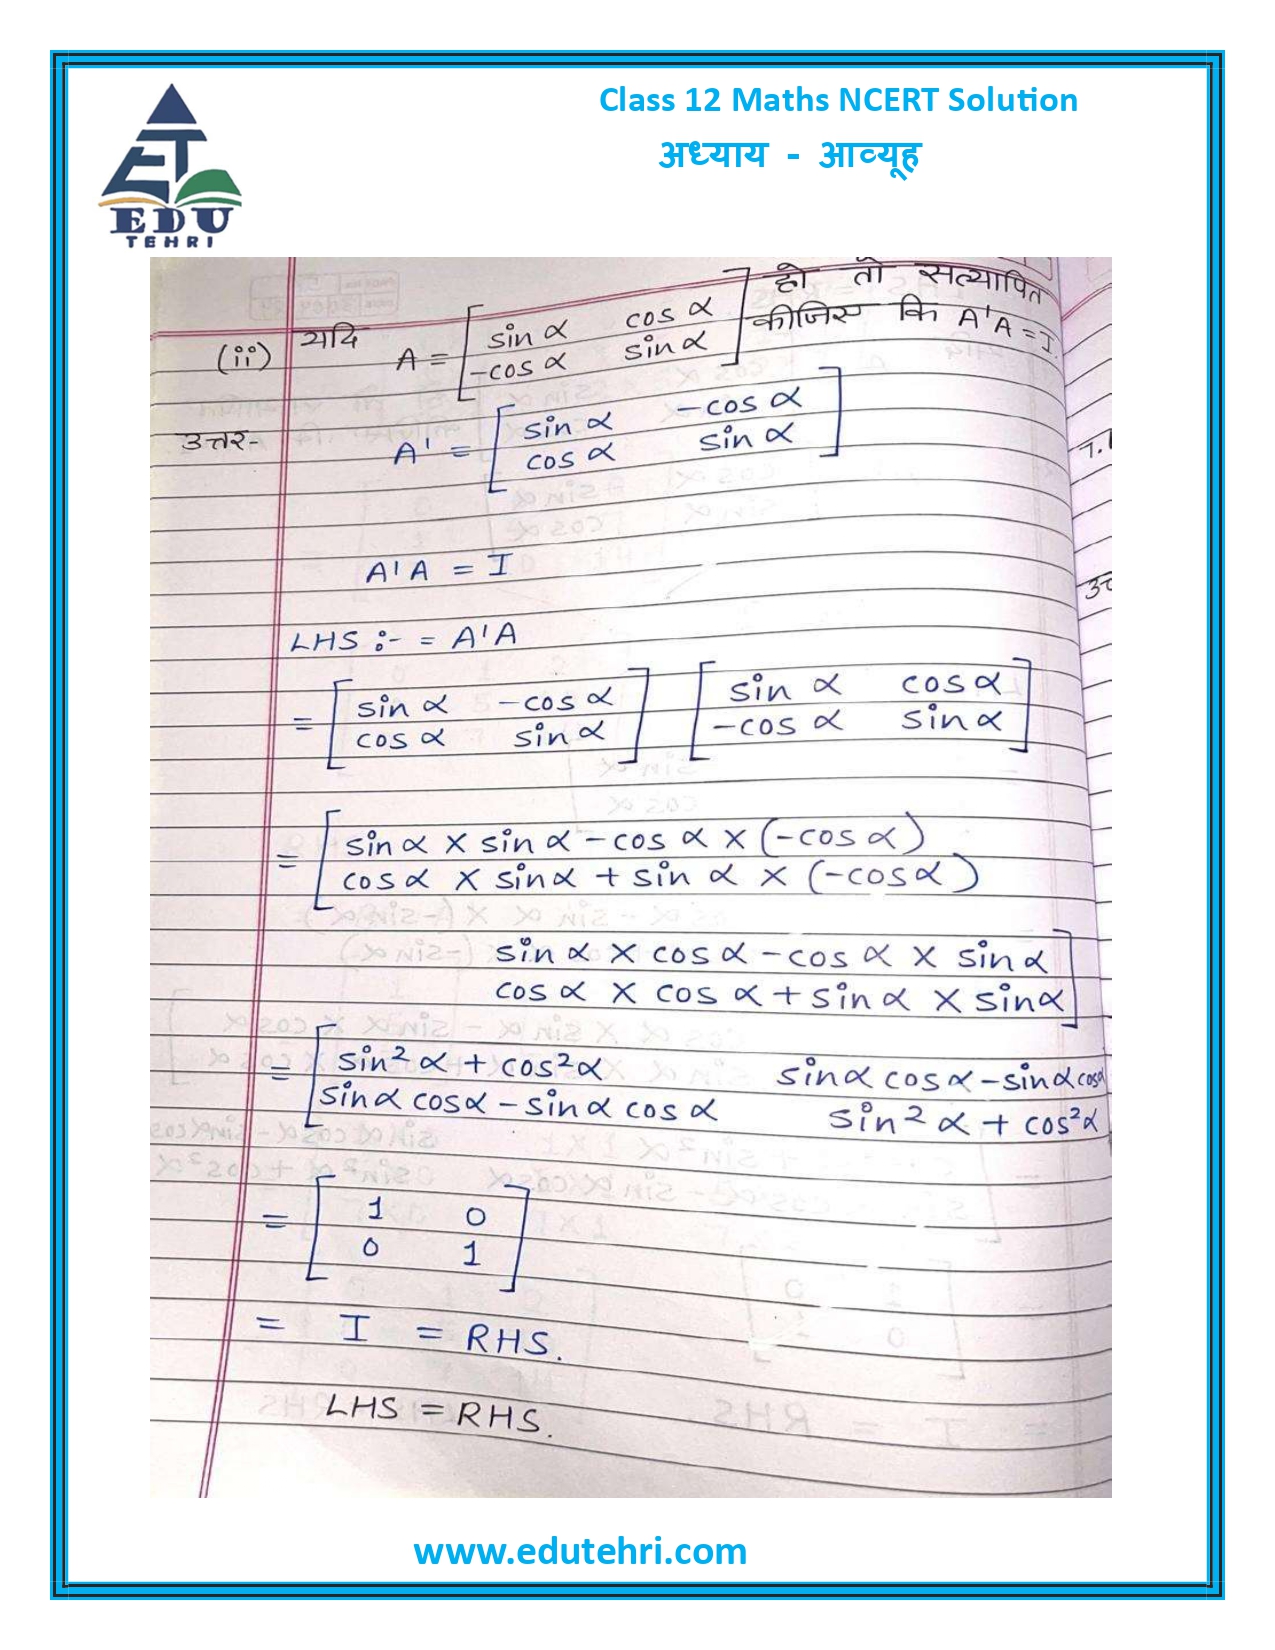 Class 12 Maths NCERT Solution
अध्याय - आव्यूह
ET
EDU
TEHRI
(ii) यदि A = [sin α cos α
-cos α sin α] हो तो सत्यापित
कीजिए कि A'A = I.
उत्तर- A' = [sin α -cos α
cos α sin α]
A'A = I
LHS :- = A'A
= [sin α -cos α] [sin α cos α]
[cos α sin α] [-cos α sin α]
= [sin α × sin α - cos α × (-cos α)
cos α × sin α + sin α × (-cos α)
sin α × cos α - cos α × sin α
cos α × cos α + sin α × sin α]
= [sin² α + cos² α sin α cos α - sin α cos α
sin α cos α - sin α cos α sin² α + cos² α
= [1 0
0 1]
= I = RHS.
LHS = RHS.
www.edutehri.com